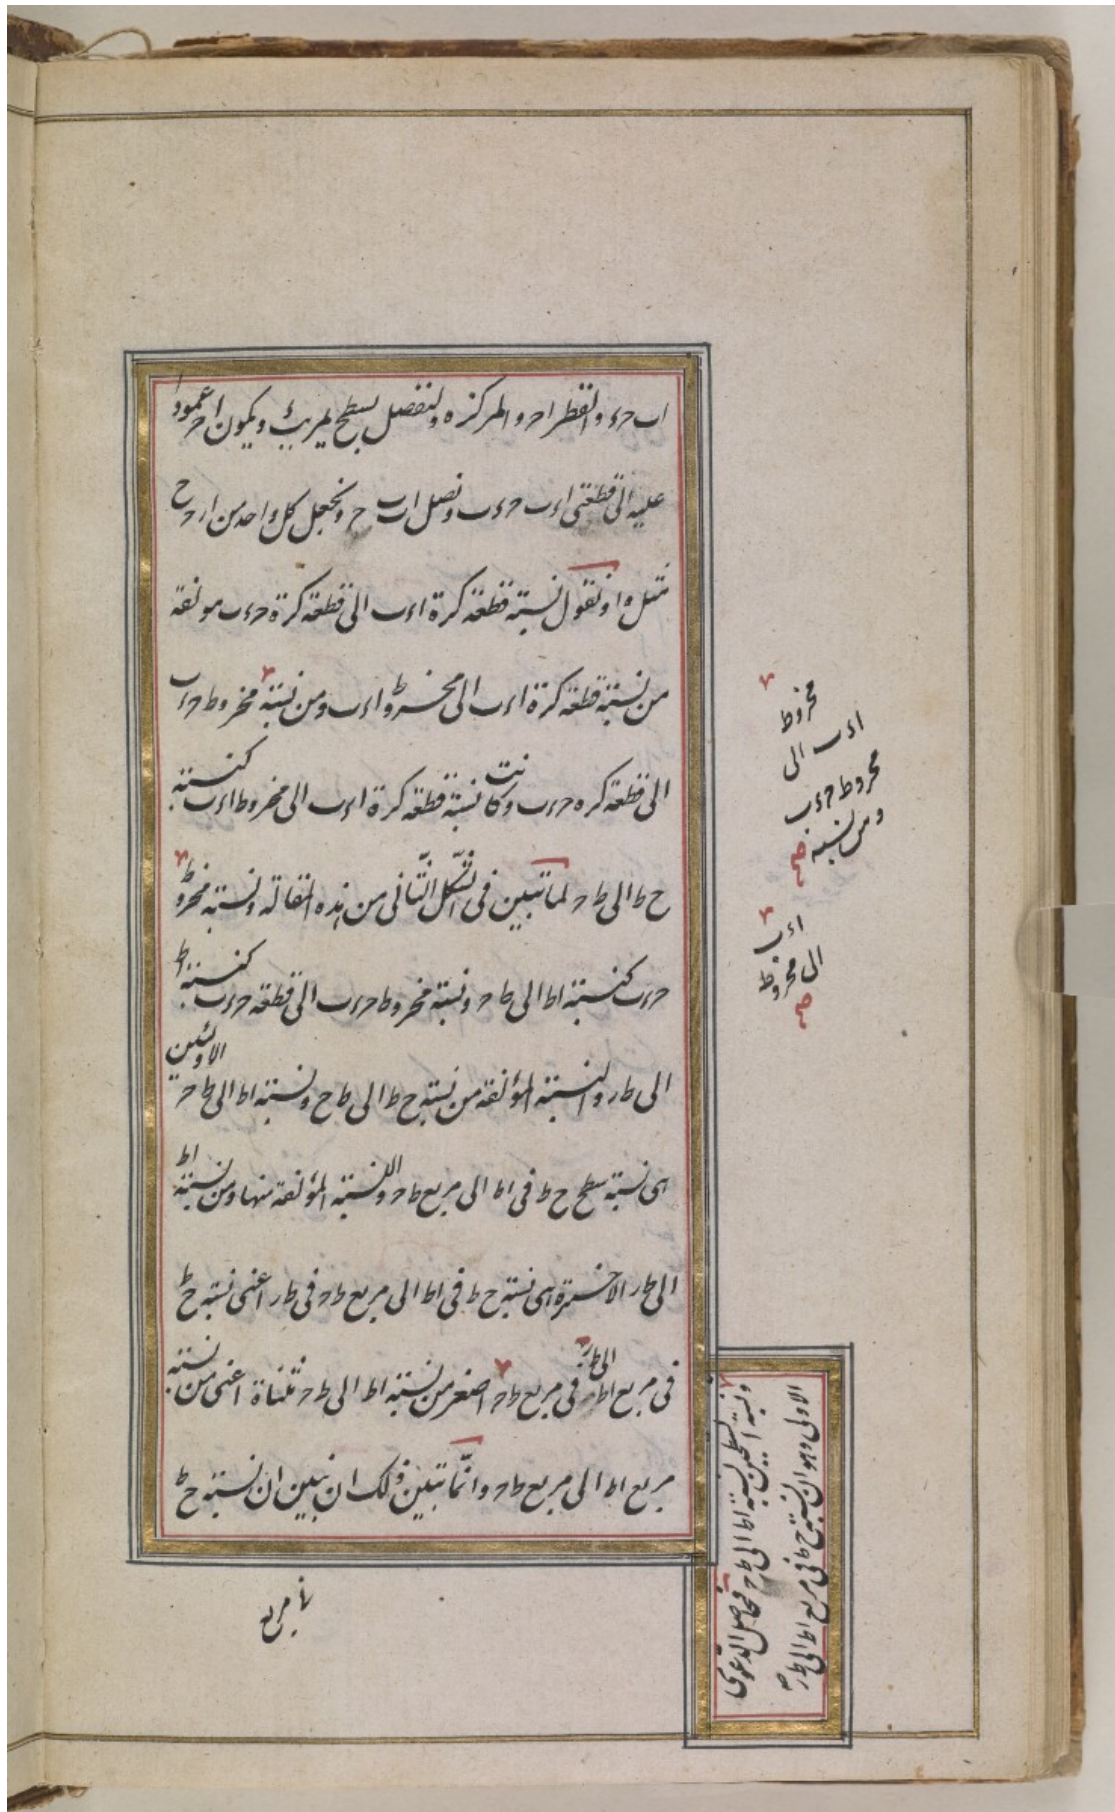 اب حء والقطر احـ والمركز ه ولنفصل بسطح يمر ببء ويكون احـ عمودا
عليه الى قطعتى اءب حءب ونصل اب ب حـ ونجعل كل واحد من ار حـ ح
مثل و ا ونقول نسبة قطعة كرة اءب الى قطعة كرة حءب مولفة
من نسبة قطعة كرة اءب الى مخروط اءب ومن نسبة مخروط حءب
الى قطعة كره حءب وكانت نسبة قطعة كرة اءب الى مخروط اءب كنسبة
ح ط الى ط حـ لما تبين فى الشكل الثانى من هذه المقالة ونسبة مخروط
حءب كنسبة اط الى ط حـ ونسبة مخروط حءب الى قطعة حءب كنسبة اط
الى ط ر والنسبة المؤلفة من نسبة ح ط الى ط ح ونسبة اط الى ط حـ الاوليين
هى نسبة سطح ح ط فى اط الى مربع ط حـ والنسبة المؤلفة منها ومن نسبة اط
الى ط ر الاخيرة هى نسبة ح ط فى اط الى مربع ط حـ فى ط ر اعنى نسبة ح ط
فى مربع اط الى ط ر فى مربع ط حـ اصغر من نسبة اط الى ط حـ مثناة اعنى من نسبة
مربع اط الى مربع ط حـ وانما تبين ذلك ان نبين ان نسبة ح ط
فى مربع
مخروط
اءب الى
مخروط حءب
ومن نسبة صح
اءب
الى مخروط
صح
ونسبة السطحين نسبة اط الى ط حـ فحاصل الدعوى
الاولى وهو ان نسبة ح ط فى مربع اط الى ط ر